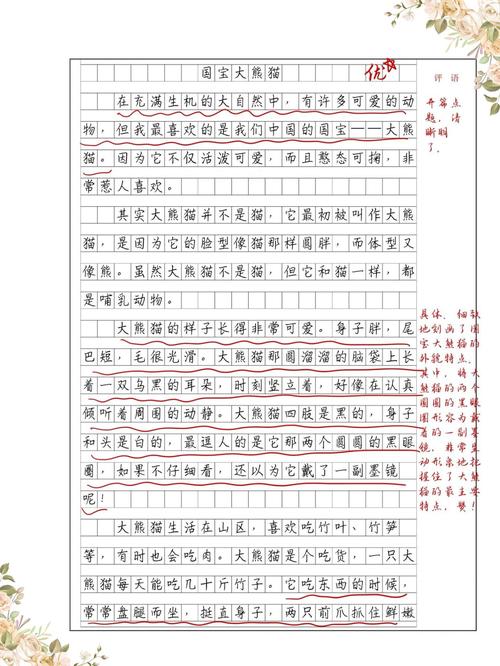 国宝大熊猫
优
评语
在充满生机的大自然中，有许多可爱的动
物，但我最喜欢的是我们中国的国宝——大熊
猫。因为它不仅活泼可爱，而且憨态可掬，非
常惹人喜欢。
其实大熊猫并不是猫，它最初被叫作大熊
猫，是因为它的脸型像猫那样圆胖，而体型又
像熊。虽然大熊猫不是猫，但它和猫一样，都
是哺乳动物。
大熊猫的样子长得非常可爱。身子胖，尾
巴短，毛很光滑。大熊猫那圆溜溜的脑袋上长
着一双乌黑的耳朵，时刻竖立着，好像在认真
倾听着周围的动静。大熊猫四肢是黑的，身子
和头是白的，最逗人的是它那两个圆圆的黑眼
圈，如果不仔细看，还以为它戴了一副墨镜
呢！
大熊猫生活在山区，喜欢吃竹叶、竹笋
等，有时也会吃肉。大熊猫是个吃货，一只大
熊猫每天能吃几十斤竹子。它吃东西的时候，
常常盘腿而坐，挺直身子，两只前爪抓住鲜嫩
开篇点
题，清
晰明
了。
具体、细致
地刻画了国
宝大熊猫的
外貌特点。
其中，将大
熊猫的两个
圆圆的黑眼
圈形容为戴
着的一副墨
镜，非常生
动形象地把
握住了大熊
猫的最主要
特点，赞！